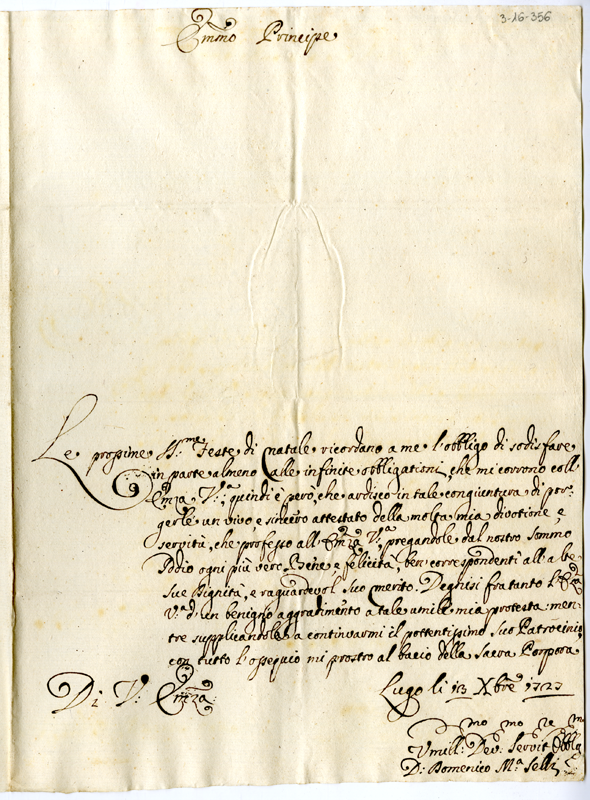 3-16-356
Emmo Principe
Le prossime SS.me Feste di Natale ricordano a me l'obbligo di sodisfare
in parte almeno alle infinite obbligationi, che mi corrono coll
Emza V.a; quindi è però, che ardisco in tale congiuntura di por-
gerle un vivo e sincero attestato della molta mia divotione, e
servitù, che professo all Emza V.a pregandole dal nostro Sommo
Iddio ogni più vero Bene, e felicità, ben correspondenti all a
sue Dignità, e raguardevol suo merito. Deghisi fra tanto l'Emza
V.a d'un benigno aggradimento a tale umile mia protesta men-
tre supplicandole a continuarmi il pottentissimo suo Patrocinio,
con tutto l'ossequio mi prostro al bacio della Sacra Porpora
Di V: Emza
Lugo li 13 Xbre 1727
mo mo re mo
Umil: Dev: Servit Obblig
D: Domenico M.a Selli